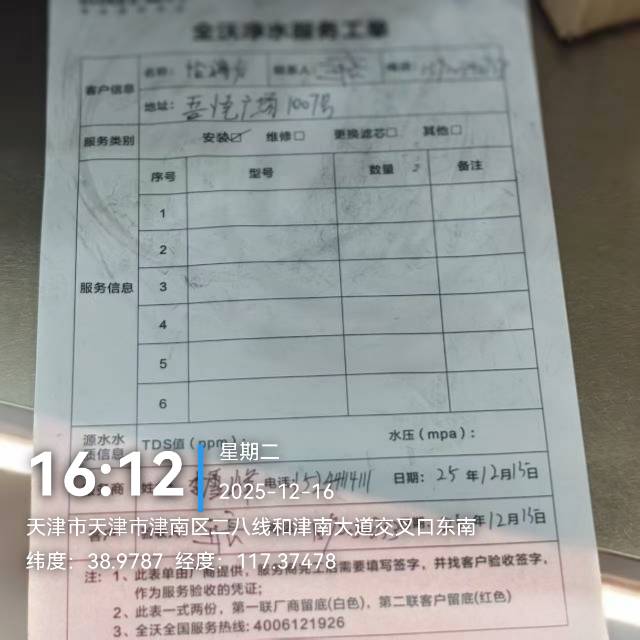 全沃净水服务工单
客户信息 名称: 联系人 电话:
地址: 吾悦广场1007号
服务类别 安装☑ 维修□ 更换滤芯□ 其他□
服务信息 序号 型号 数量 备注
1
2
3
4
5
6
源水水质信息 TDS值(ppm): 水压(mpa):
电话: 日期: 25年12月15日
年12月15日
16:12 星期二
2025-12-16
天津市天津市津南区二八线和津南大道交叉口东南
纬度: 38.9787 经度: 117.37478
注: 1、此表单由厂商提供, 服务商完工后需要填写签字, 并找客户验收签字,
作为服务验收的凭证;
2、此表一式两份, 第一联厂商留底(白色), 第二联客户留底(红色)
3、全沃全国服务热线: 4006121926